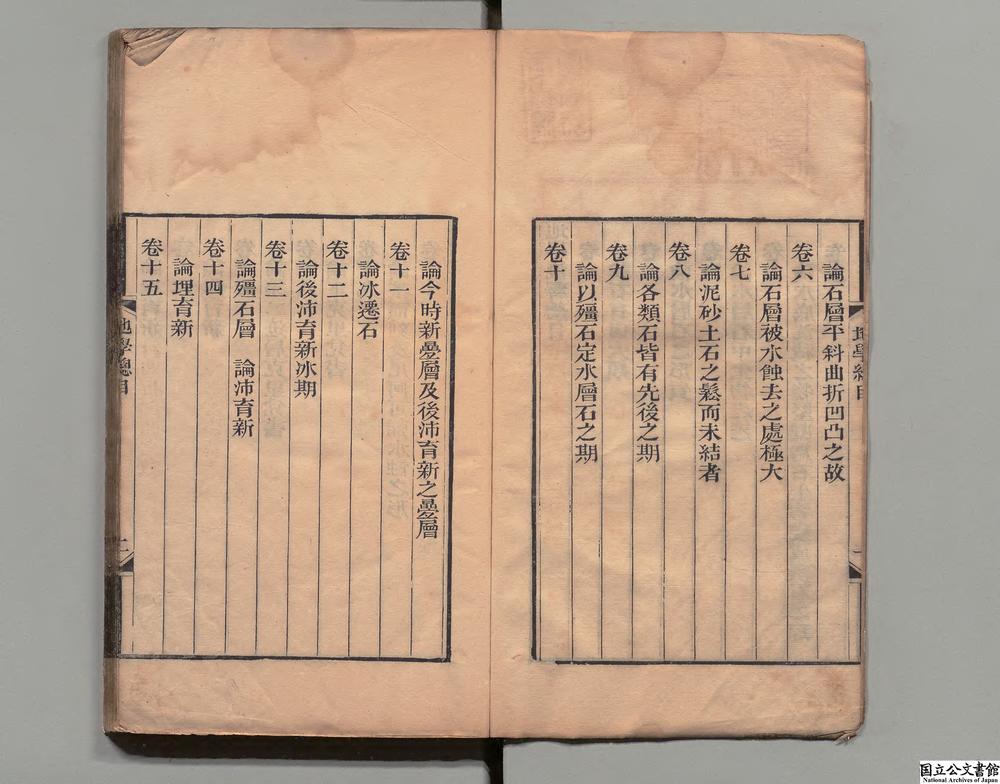 論石層平斜曲折凹凸之故
卷六
論石層被水蝕去之處極大
卷七
論泥砂土石之鬆而未結者
卷八
論各類石皆有先後之期
卷九
論以殭石定水層石之期
卷十
論今時新疊層及後沛育新之疊層
卷十一
論冰遷石
卷十二
論後沛育新冰期
卷十三
論殭石層　論沛育新
卷十四
論埋育新
卷十五
地學總目
二
国立公文書館
National Archives of Japan